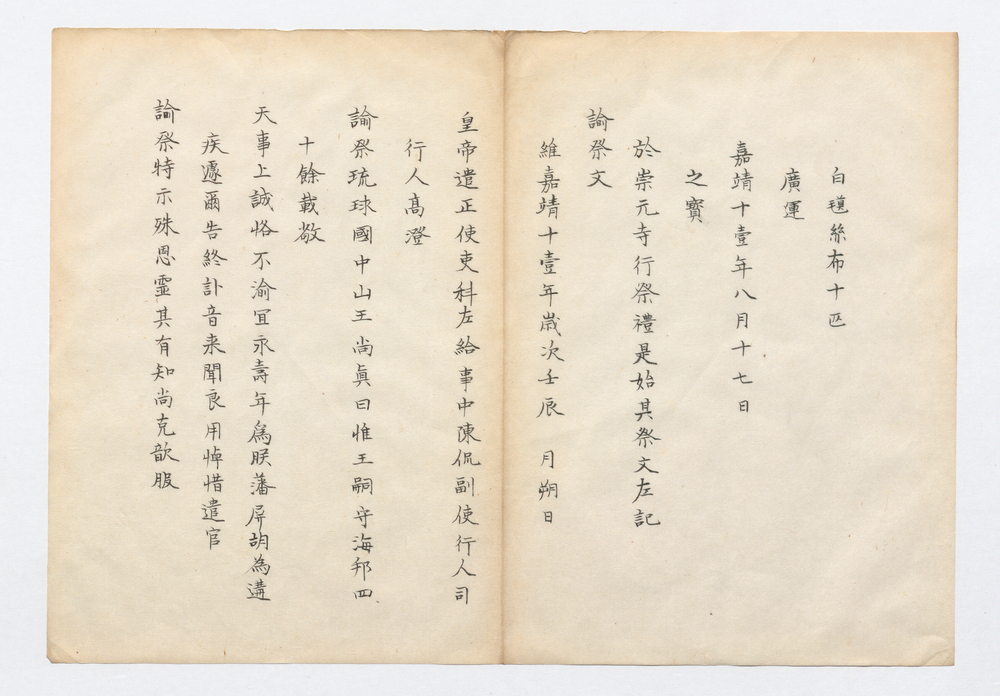 白氁絲布十匹
廣運
嘉靖十壹年八月十七日
之寳
於崇元寺行祭禮是始其祭文左記
諭祭文
維嘉靖十壹年歳次壬辰　月朔日
皇帝遣正使吏科左給事中陳侃副使行人司
行人髙澄
諭祭琉球國中山王尚眞曰惟王嗣守海邦四
十餘載敬
天事上誠恪不渝冝永壽年爲朕藩屏胡為遘
疾遽爾告終訃音来聞良用悼惜遣官
諭祭特示殊恩霊其有知尚克歆服